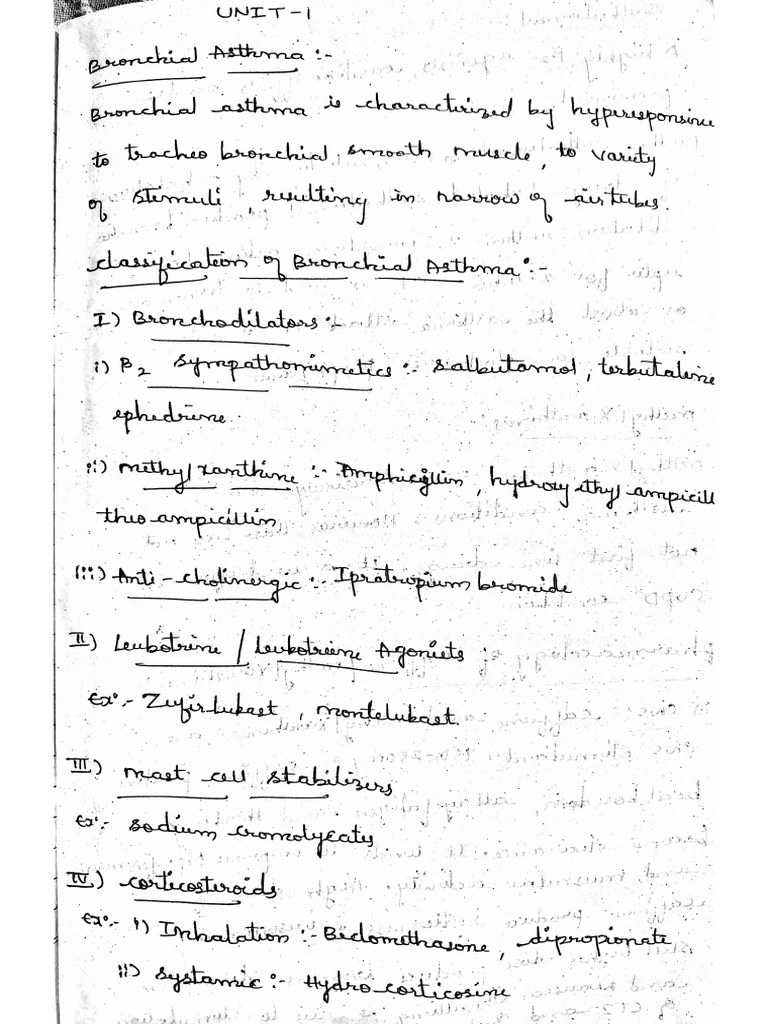 UNIT-1
Bronchial Asthma :-
Bronchial asthma is characterized by hyperesponsive
to tracheo bronchial smooth muscle, to variety
of stimuli, resulting in narrow of airtubes.
classification of Bronchial Asthma :-
I) Bronchodilators :-
i) B2 sympathomimetics :- salbutamol, terbutaline
ephedrine.
ii) methyl xanthine :- Amphicillin, hydroxy ethyl ampicill
theo ampicillin
iii) Anti-cholinergic :- Ipratropium bromide
II) Leukotrine / leukotriene Agonists :
Ex:- Zufirlukast, montelukast.
III) mast cell stabilizers
Ex:- sodium cromolycate
IV) corticosteroids
Ex:- i) Inhalation :- Beclomethasone, dipropionate
ii) systamic :- Hydro corticosine